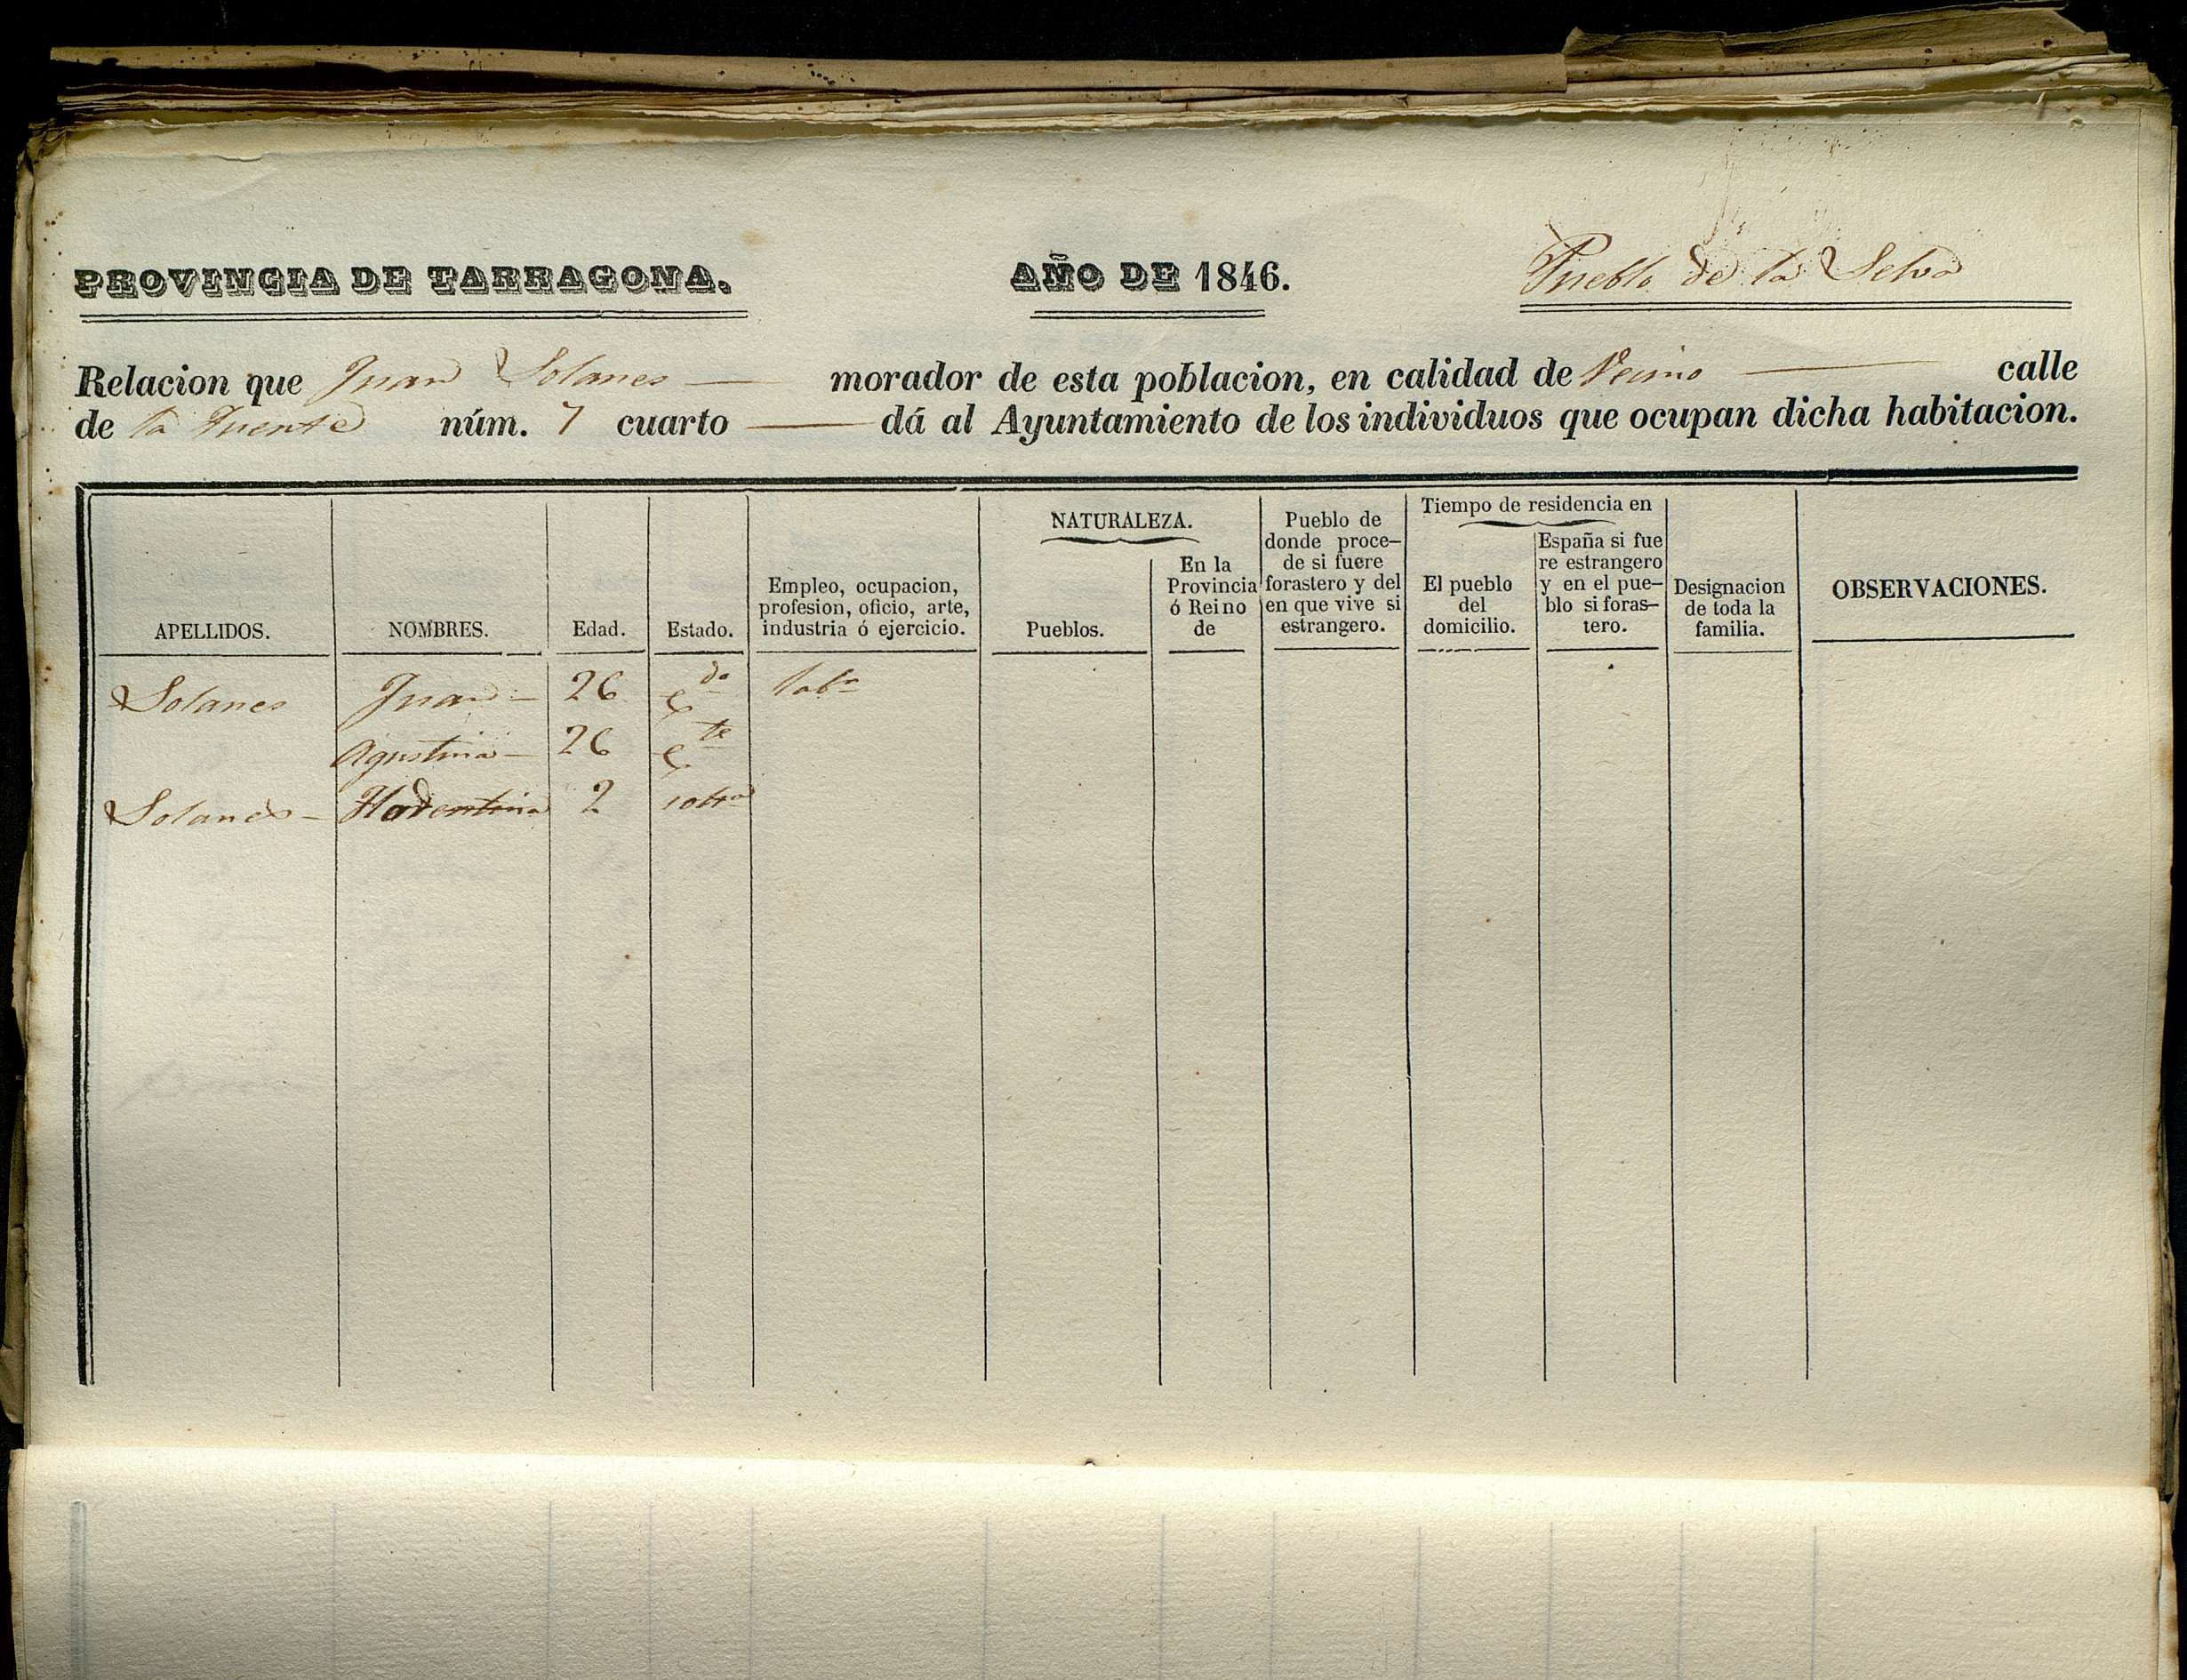 PROVINCIA DE TARRAGONA. AÑO DE 1846. Pueblo de la Selva
Relacion que Juan Solanes — morador de esta poblacion, en calidad de Vecino — calle
de la Fuente núm. 7 cuarto — dá al Ayuntamiento de los individuos que ocupan dicha habitacion.
APELLIDOS.
NOMBRES.
Edad.
Estado.
Empleo, ocupacion,
profesion, oficio, arte,
industria ó ejercicio.
NATURALEZA.
Pueblos.
En la
Provincia
ó Reino
de
Pueblo de
donde proce-
de si fuere
forastero y del
en que vive si
estrangero.
Tiempo de residencia en
El pueblo
del
domicilio.
España si fue
re estrangero
y en el pue-
blo si foras-
tero.
Designacion
de toda la
familia.
OBSERVACIONES.
Solanes Juan - 26 C.do lab.r
Agustina - 26 C.te
Solanes - 2